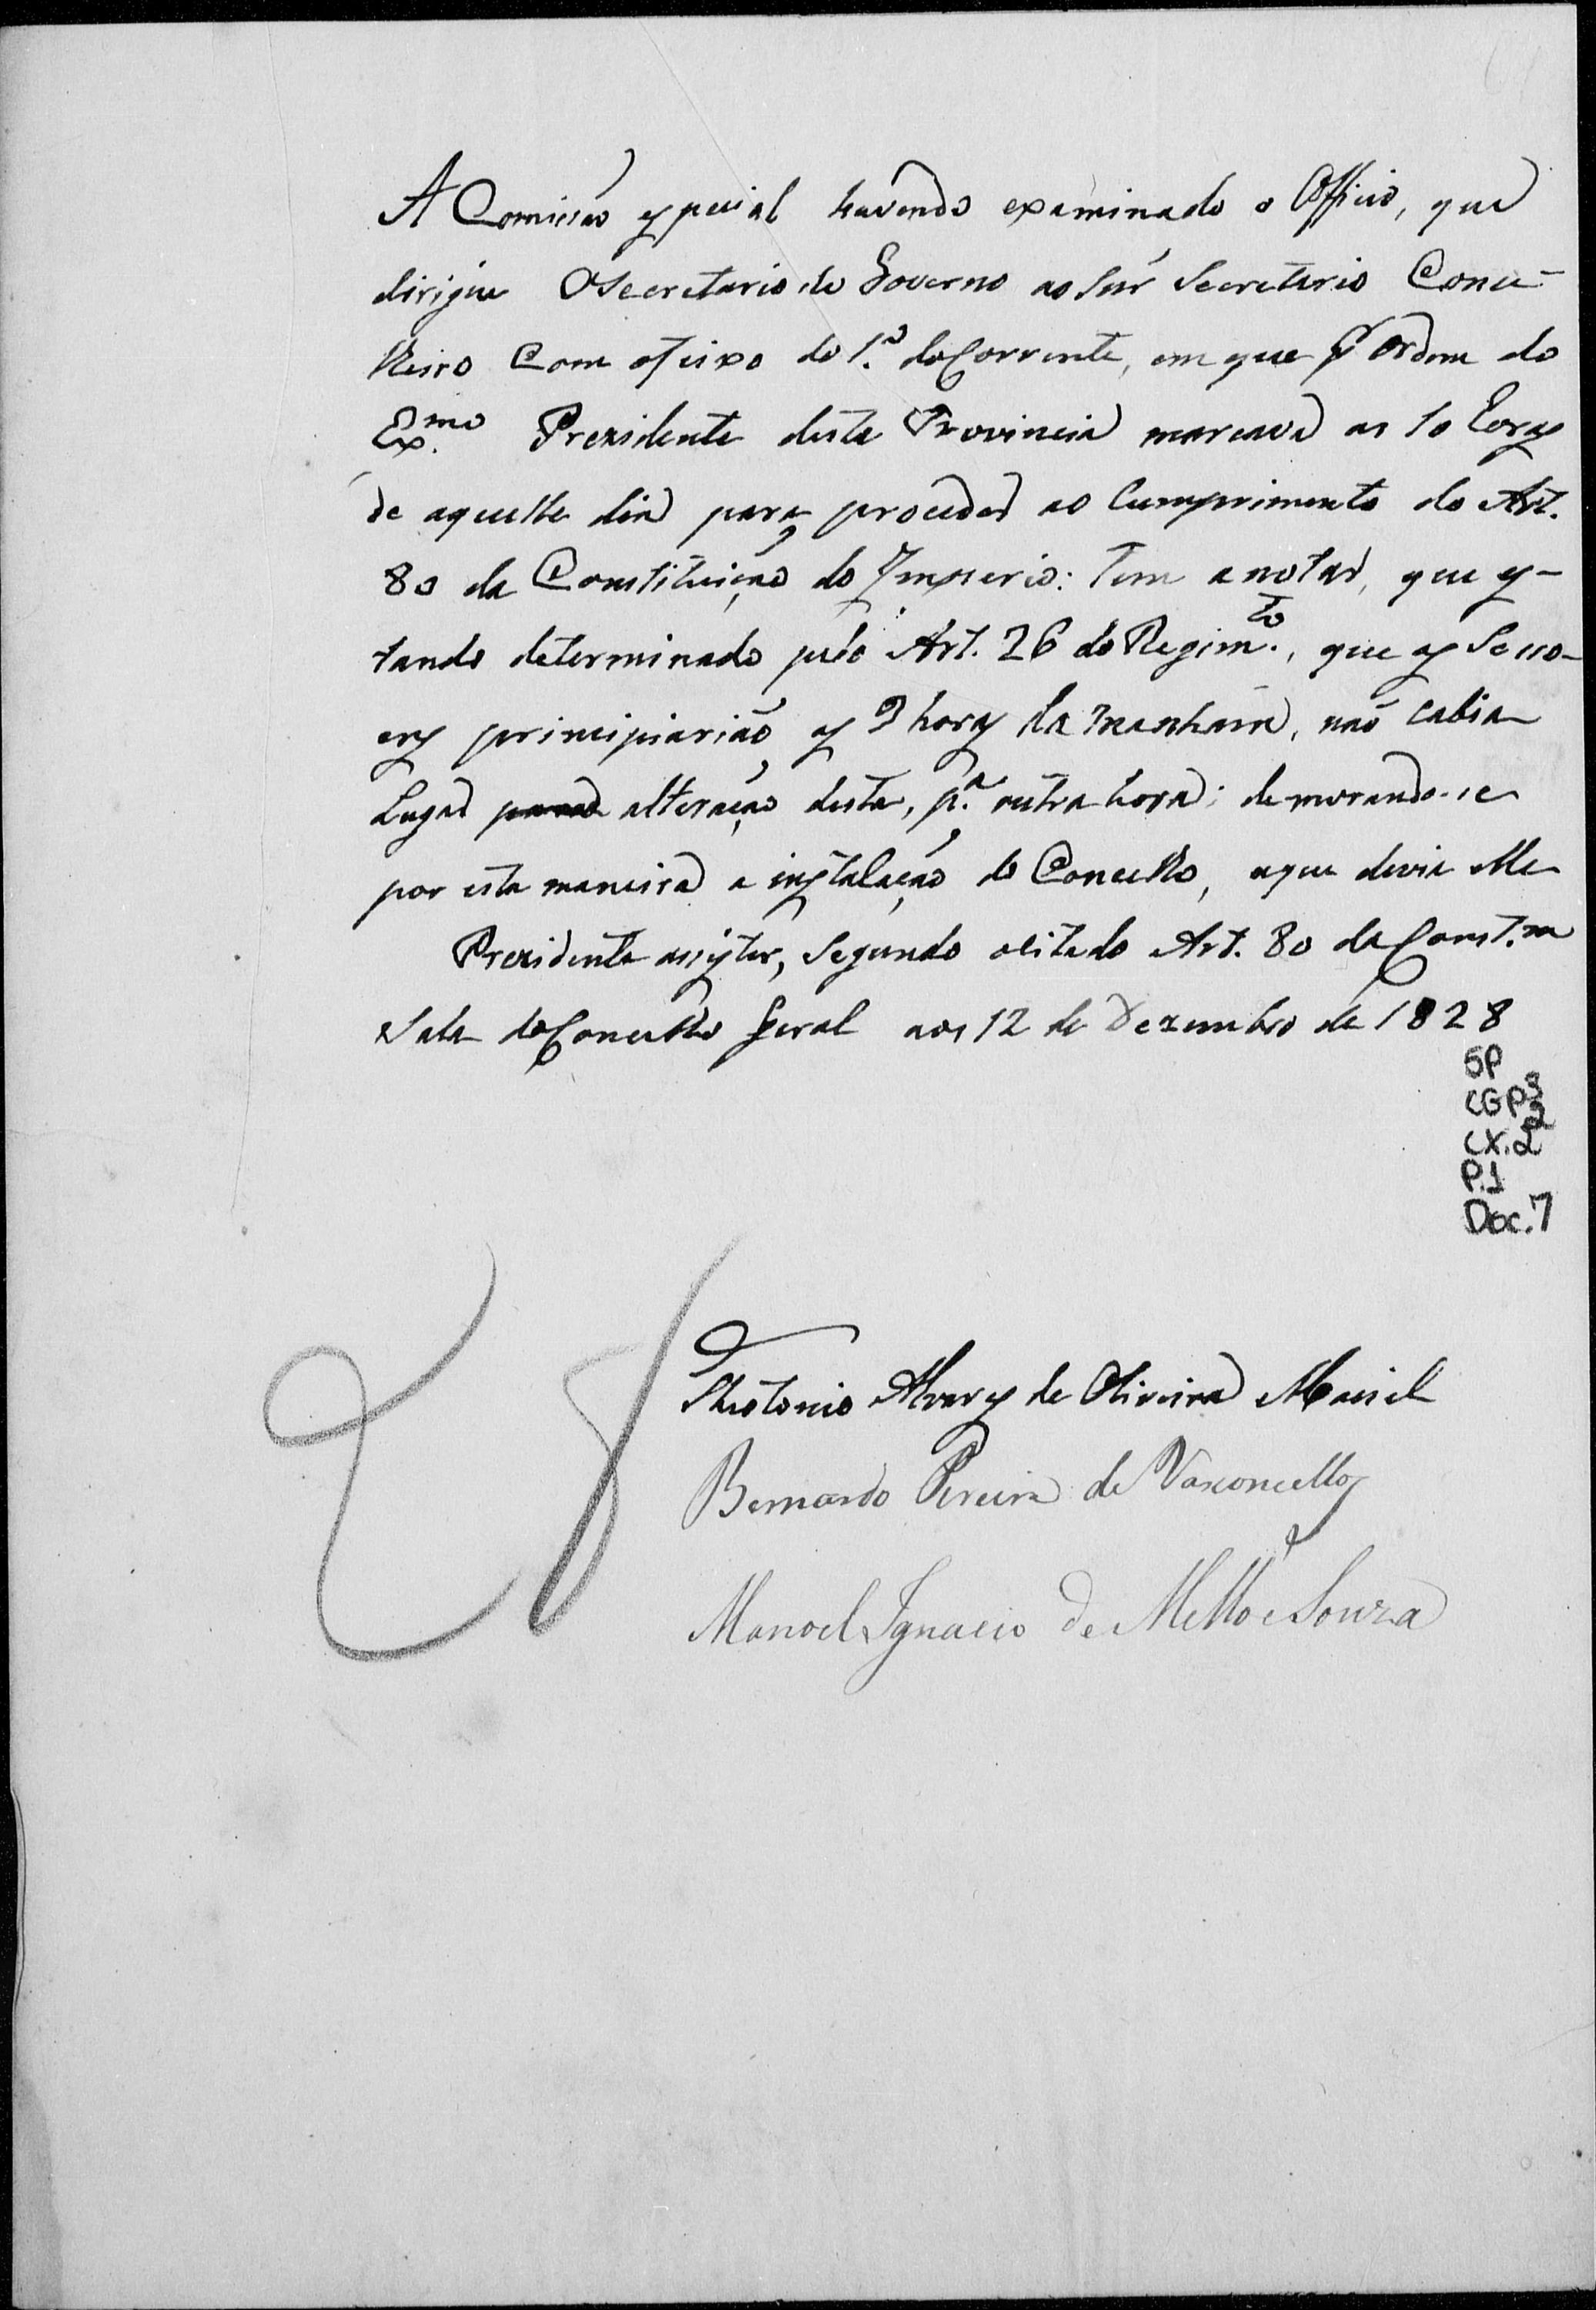 A Comissaõ especial havendo examinado o Officio, que
dirigiu O Secretario do Governo ao Snr̃ Secretario Conce-
lheiro Com o fixo do 1.º do Corrente, em que p̃ Ordem do
Ex.mo Prezidente desta Provincia marcava as 10 horas
de aquelle dia para proceder ao Cumprimento do Art.
80 da Constituiçaõ do Imperio: tem a notar, que es-
tando determinado pelo Art. 26 do Regim.to, que as Secco-
ens principiariaõ as 9 horas da manhaã, naõ cabia
Lugar alteraçaõ desta, p.a outra hora; demorando-se
por esta maneira a instalaçaõ do Concelho, a que devia elle
Prezidente assister, Segundo o cita do Art. 80 da Const.m
Sala do Concelho Geral aos 12 de Dezembro de 1828
SP
CGP3
CX.2
P.1
Doc.7
Theotonio Alvares de Oliveira Maciel
Bernardo Pereira de Vasconcellos
Manoel Ignacio de Mello e Souza
28